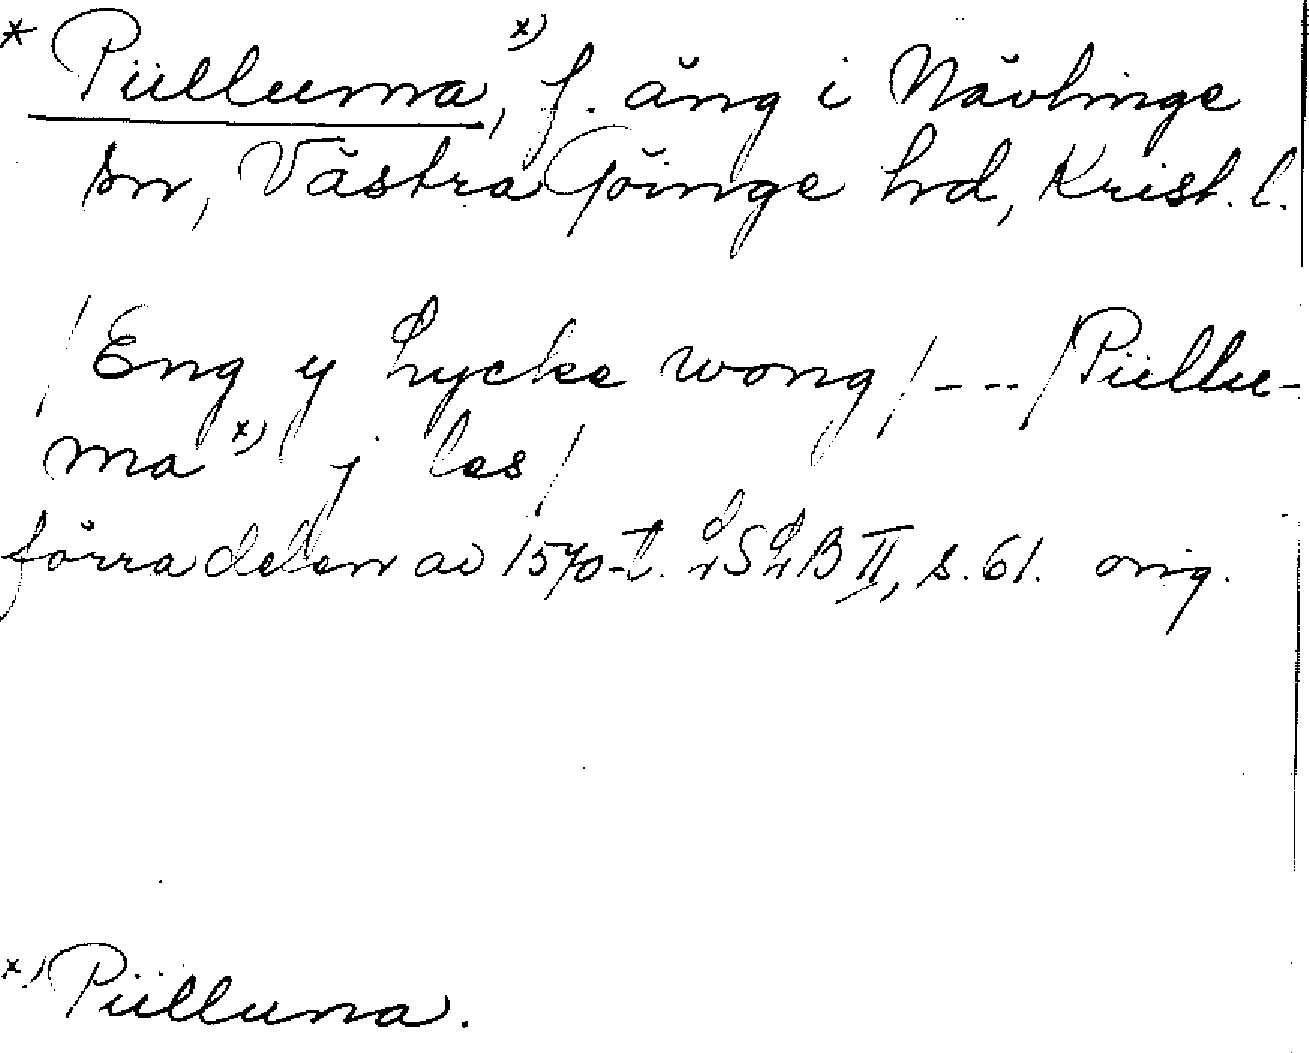 * Piilluma, x) f. äng i Nävlinge
sn, Västra Göinge hd, Krist. l.
/Eng y Lycke wong/---/Piillu-
ma x) j les/
förra delen av 1570-t. LSLB II, s. 61. orig.
x) Piilluna.